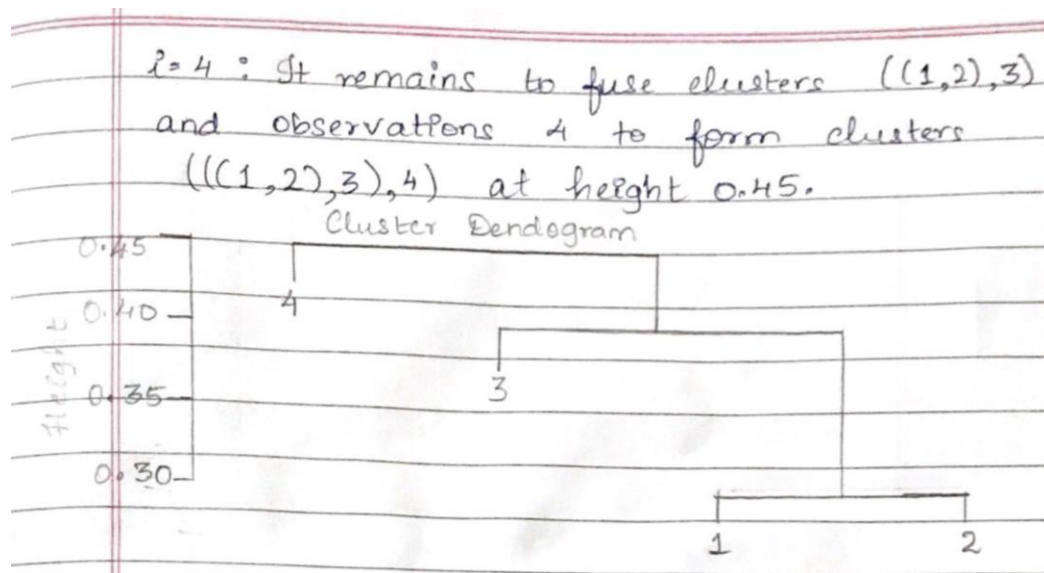 i=4 : It remains to fuse clusters ((1,2),3)
and observations 4 to form clusters
(((1,2),3),4) at height 0.45.
Cluster Dendogram
0.45
4
0.40
3
0.35
Height
0.30
1 2